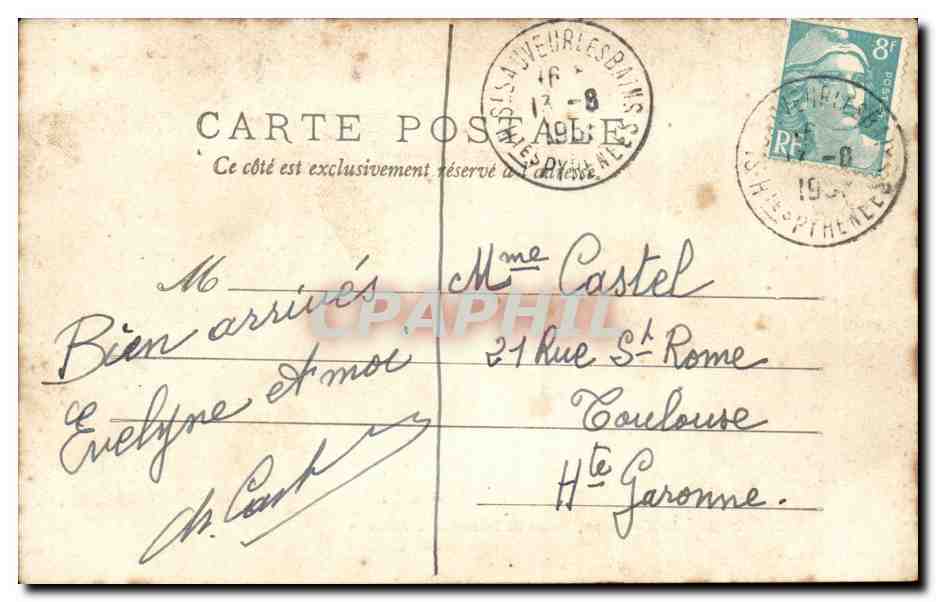 CARTE POSTALE
Ce côté est exclusivement réservé à l'adresse
ST SAUVEUR LES BAINS
16
13 -8
1951
HTES PYRENEES
8F
POSTES
RF
-8
HTES PYRENEES
M
Bien arrivés
Evelyne et moi
Mme Castel
21 Rue St Rome
Toulouse
Hte Garonne.
CPAPHIL